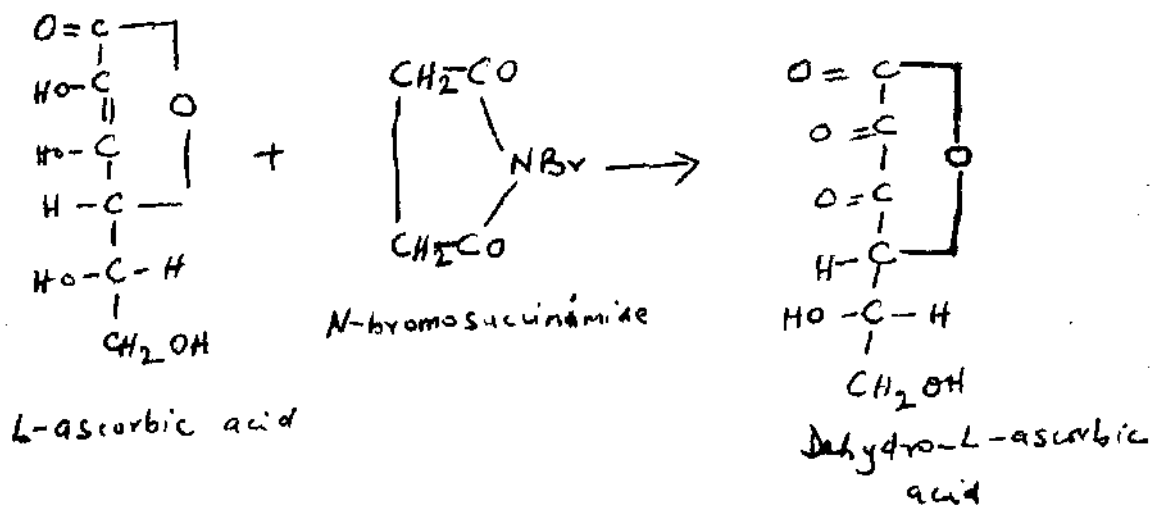 O=C
HO-C
||
HO-C
H-C
HO-C-H
CH2OH
O
L-ascorbic acid
+
CH2-CO
NBr
CH2-CO
N-bromosuccinámide
O=C
O=C
O=C
H-C
HO-C-H
CH2OH
O
Dehydro-L-ascorbic
acid